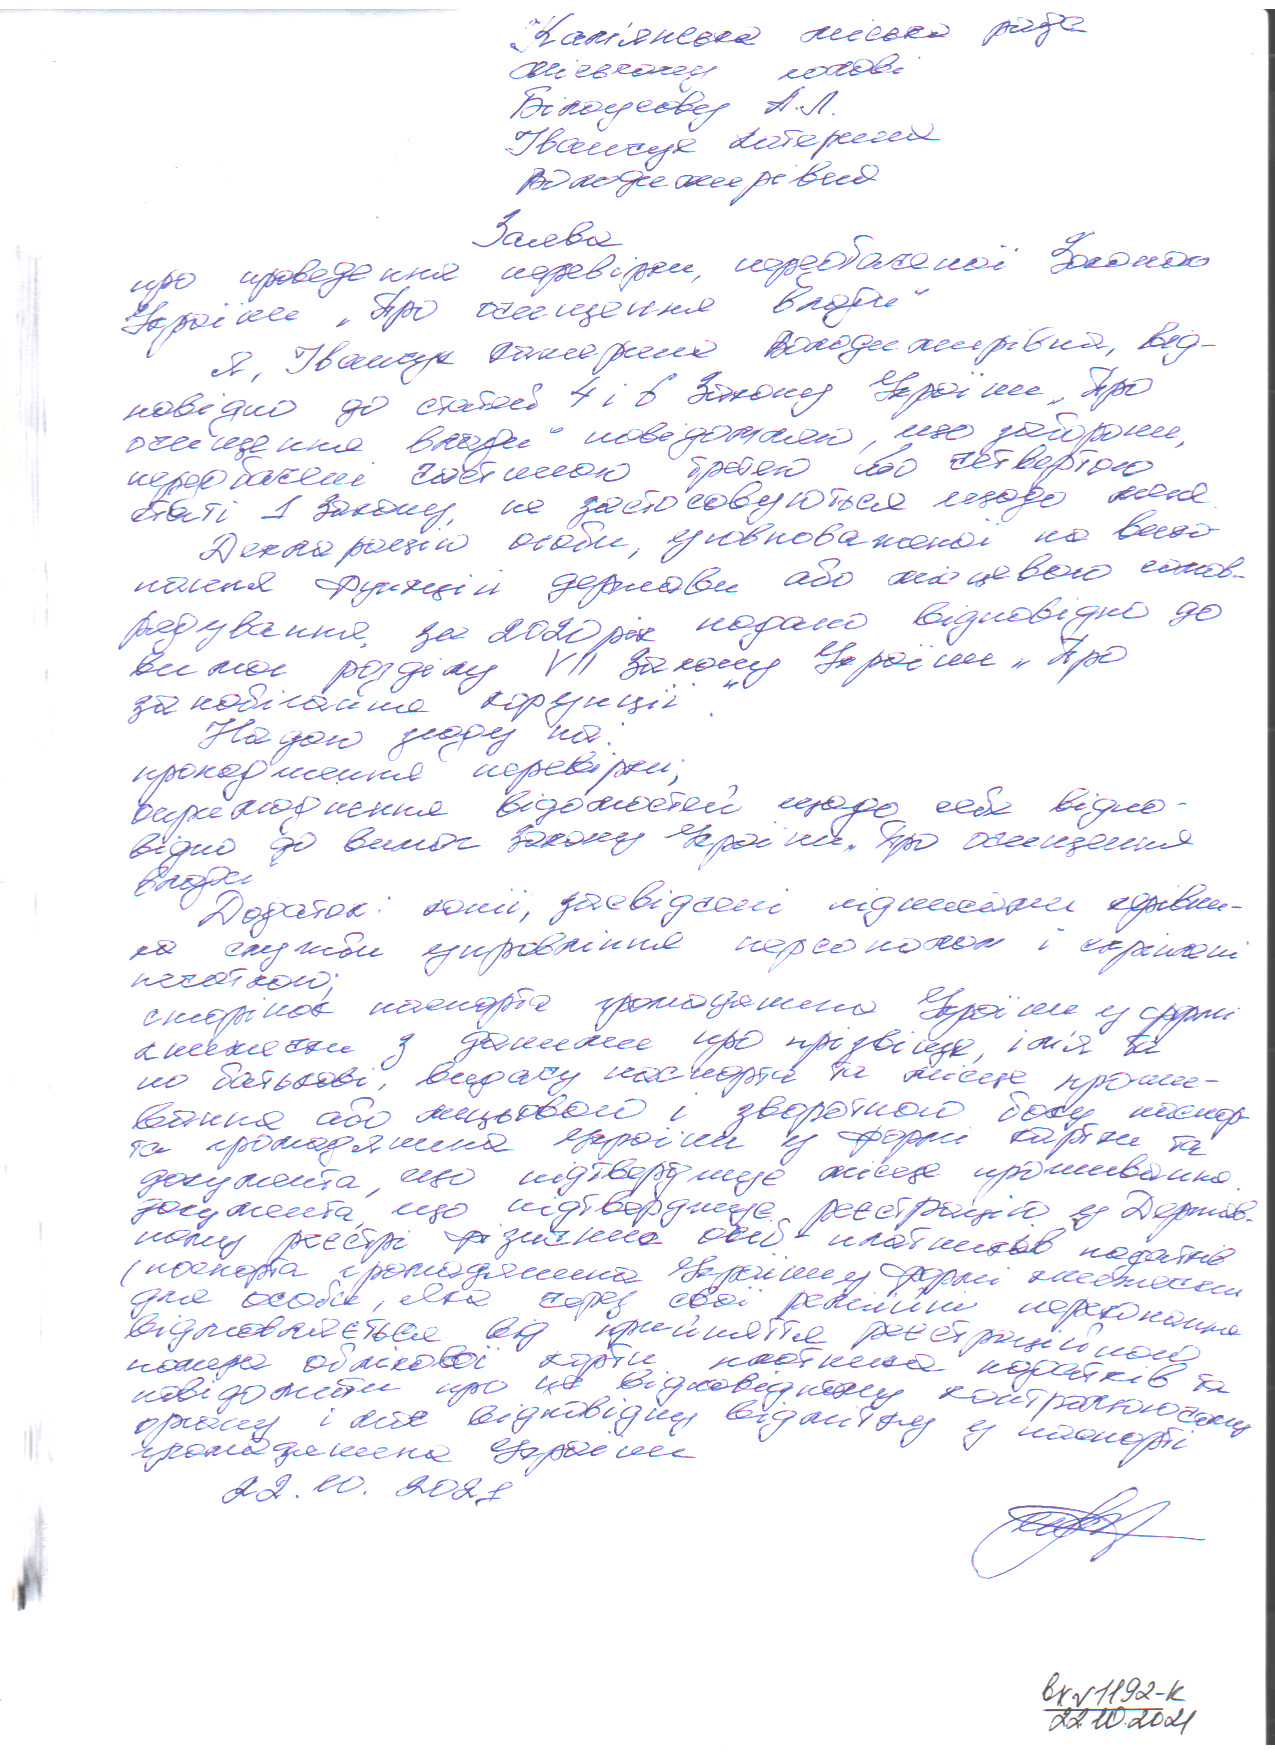 Кам'янська міська рада
міському голові
Білоусову А.Л.
Іванчук Катерина
Володимирівна
Заява
про проведення перевірки, передбаченої Законом
України „Про очищення влади“
Я, Іванчук Катерина Володимирівна, від-
повідно до статей 4 і 6 Закону України „Про
очищення влади“ повідомляю, що заборони,
передбачені частиною третьою або четвертою
статті 1 Закону, не застосовуються щодо мене.
Декларацію особи, уповноваженої на вико-
нання функцій держави або місцевого самов-
рядування, за 2020 рік подано відповідно до
вимог розділу VII Закону України „Про
запобігання корупції“.
Надаю згоду на:
проходження перевірки;
оприлюднення відомостей щодо себе відпо-
відно до вимог Закону України „Про очищення
влади“
Додаток: копії, засвідчені підписами керівни-
ка служби управління персоналом і скріплені
печаткою;
сторінок паспорта громадянина України у формі
книжечки з даними про прізвище, ім'я та
по батькові, видачу паспорта та місце прожи-
вання або лицьового і зворотного боку паспор
та громадянина України у формі картки та
документа, що підтверджує місце проживання.
документа, що підтверджує реєстрацію у Держав-
ному реєстрі фізичних осіб - платників податків
(паспорта громадянина України у формі книжечки
для особи, яка через свої релігійні переконання
відмовляється від прийняття реєстраційного
номера облікової картки платника податків та
повідомити про це відповідному контролюючому
органу і має відповідну відмітку у паспорті
громадянина України
22.10.2021
вх № 1192-К
22.10.2021